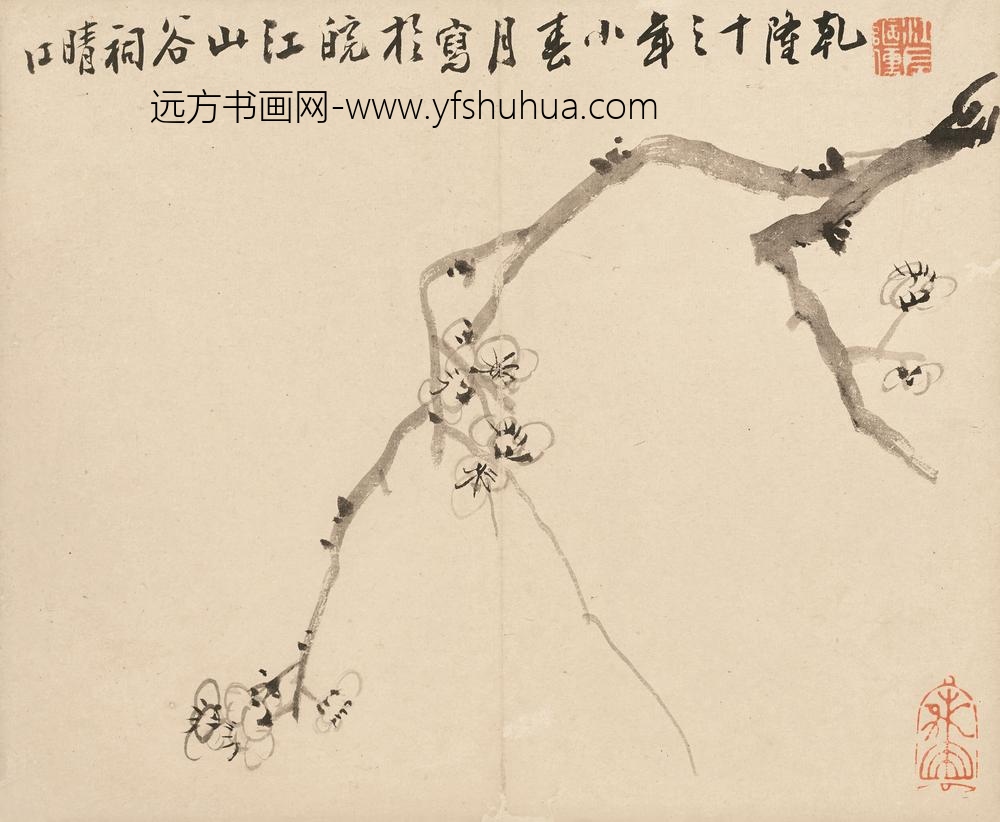 乾隆十三年小春月寫於皖江山谷祠晴江
远方书画网-www.yfshuhua.com